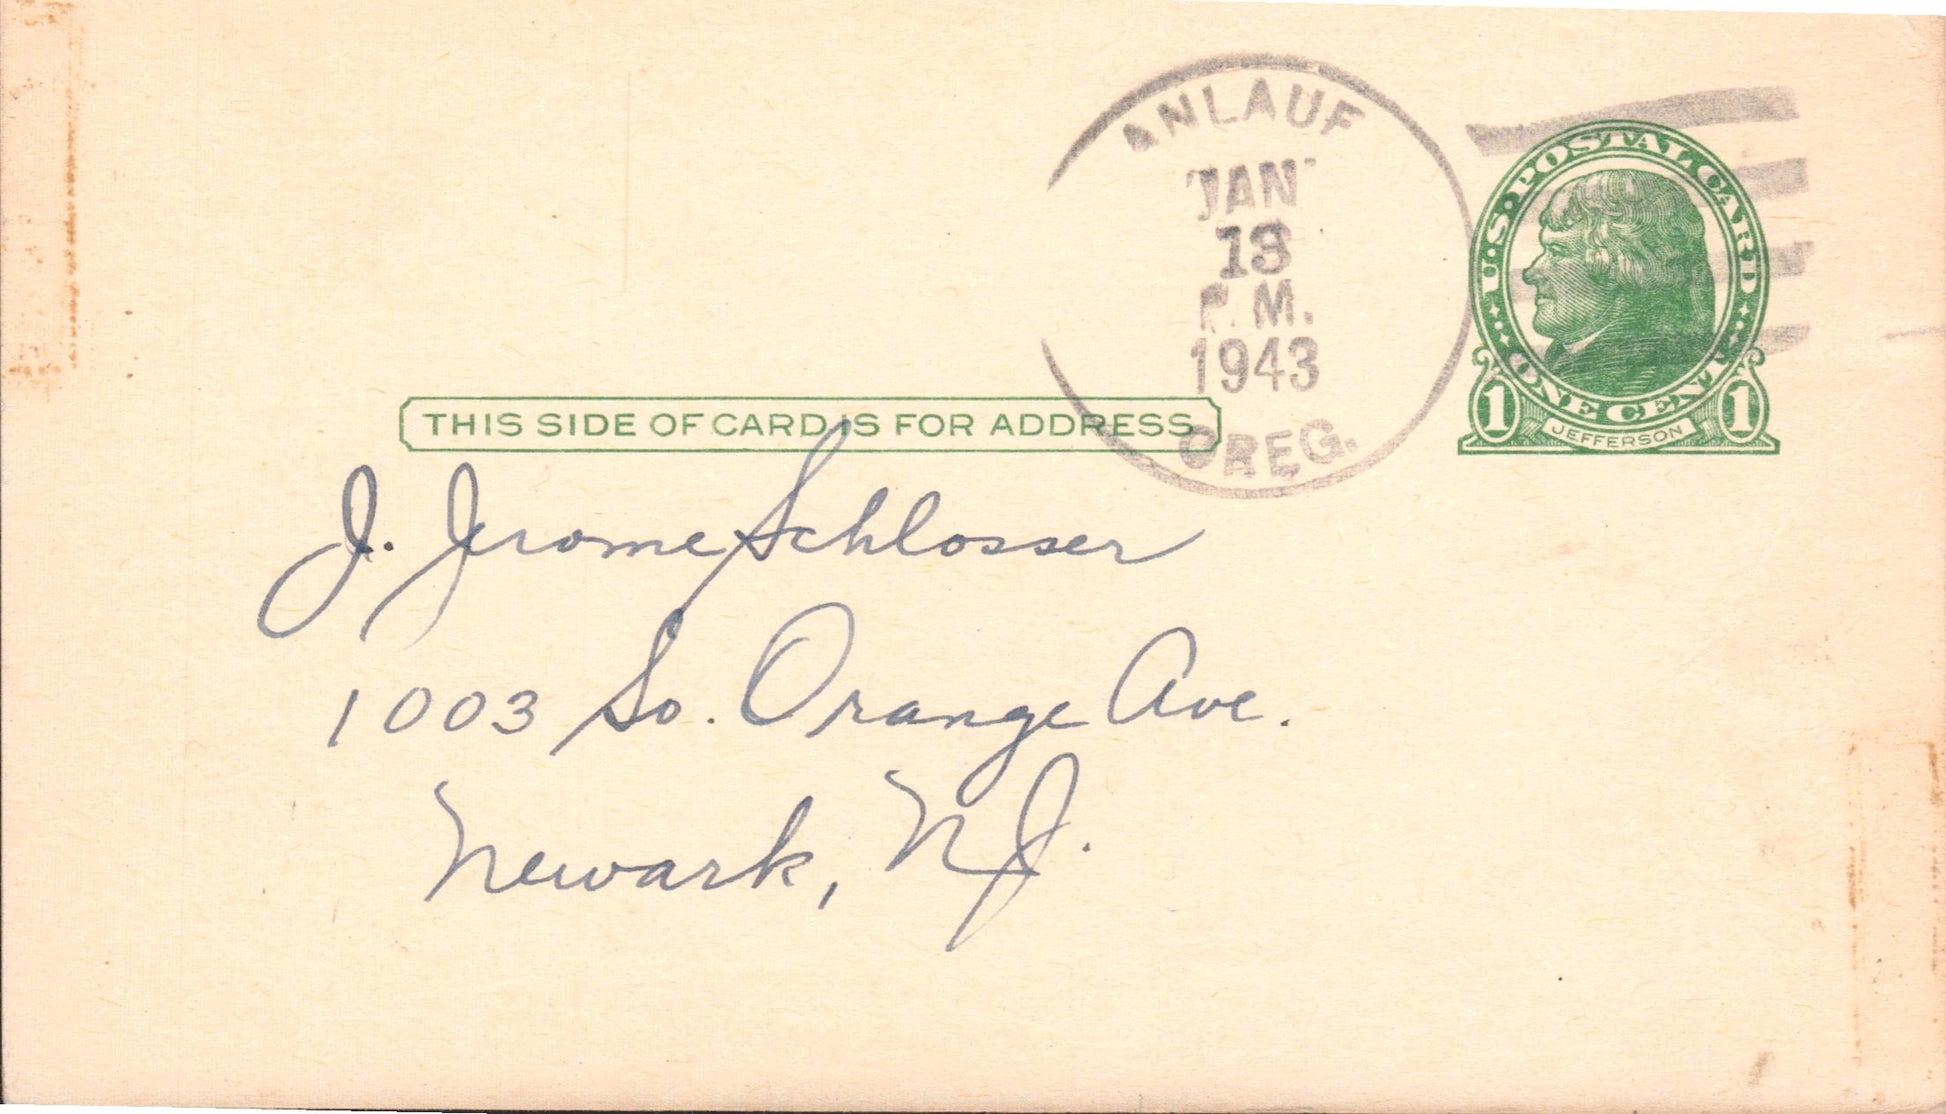 ANLAUF
JAN
13
P.M.
1943
OREG.
U.S. POSTAL CARD
ONE CENT
1 1
JEFFERSON
THIS SIDE OF CARD IS FOR ADDRESS
J. Jerome Schlosser
1003 So. Orange Ave.
Newark, N.J.